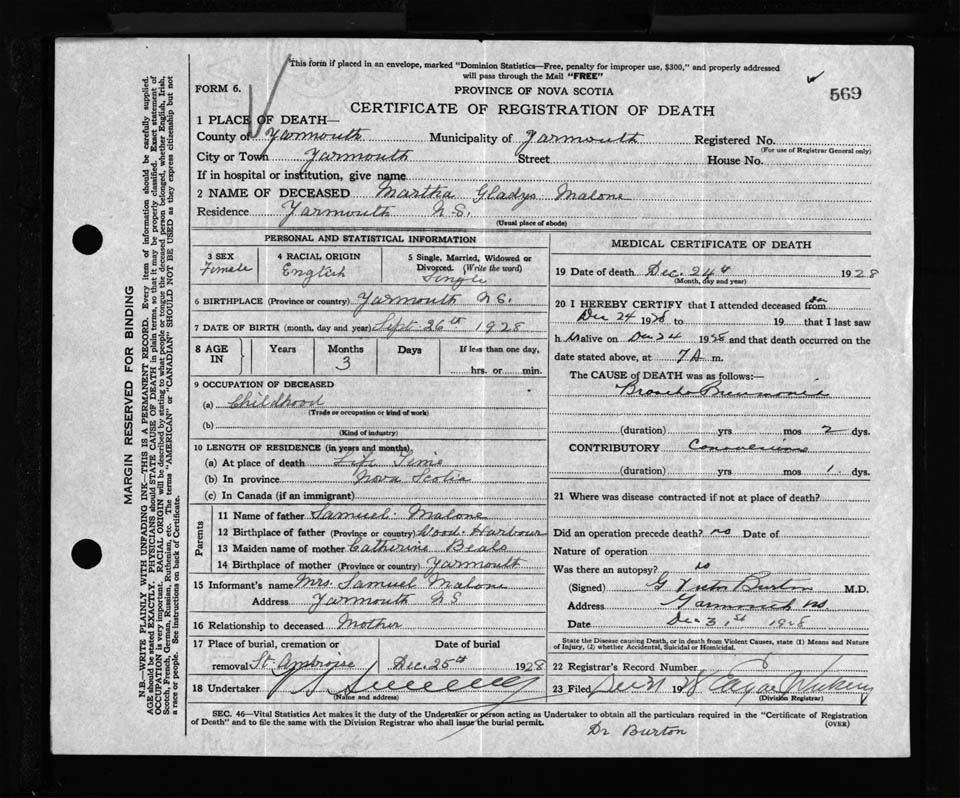 This form if placed in an envelope, marked "Dominion Statistics—Free, penalty for improper use, $300," and properly addressed
will pass through the Mail "FREE"
FORM 6. PROVINCE OF NOVA SCOTIA 569
CERTIFICATE OF REGISTRATION OF DEATH
1 PLACE OF DEATH—
County of Yarmouth Municipality of Yarmouth Registered No.
(For use of Registrar General only)
City or Town Yarmouth Street House No.
If in hospital or institution, give name
2 NAME OF DECEASED Martha Gladys Malone
Residence Yarmouth N.S.
(Usual place of abode)
PERSONAL AND STATISTICAL INFORMATION
3 SEX 4 RACIAL ORIGIN 5 Single, Married, Widowed or
Divorced. (Write the word)
Female English Single
6 BIRTHPLACE (Province or country) Yarmouth N.S.
7 DATE OF BIRTH (month, day and year) Sept 26th 1928
8 AGE IN Years Months Days If less than one day,
3 hrs. or min.
9 OCCUPATION OF DECEASED
(a) Childhood
(Trade or occupation or kind of work)
(b)
(Kind of industry)
10 LENGTH OF RESIDENCE (in years and months)
(a) At place of death Life Time
(b) In province Nova Scotia
(c) In Canada (if an immigrant)
Parents
11 Name of father Samuel Malone
12 Birthplace of father (Province or country) Wood Harbour
13 Maiden name of mother Catherine Beals
14 Birthplace of mother (Province or country) Yarmouth
15 Informant's name Mrs. Samuel Malone
Address Yarmouth N S
16 Relationship to deceased Mother
17 Place of burial, cremation or Date of burial
removal St. Ambroise Dec. 25th 1928
18 Undertaker
(Name and address)
MEDICAL CERTIFICATE OF DEATH
19 Date of death Dec. 24th 1928
(Month, day and year)
20 I HEREBY CERTIFY that I attended deceased from
Dec 24 1928 to 19 that I last saw
h alive on Dec 24 1928 and that death occurred on the
date stated above, at 7 A m.
The CAUSE of DEATH was as follows:—
Broncho Pneumonia
(duration) yrs mos 2 dys.
CONTRIBUTORY Convulsions
(duration) yrs mos 1 dys.
21 Where was disease contracted if not at place of death?
Did an operation precede death? no Date of
Nature of operation
Was there an autopsy? no
(Signed) G Victor Burton M.D.
Address Yarmouth NS.
Date Dec 31st 1928
State the Disease causing Death, or in death from Violent Causes, state (1) Means and Nature
of Injury, (2) whether Accidental, Suicidal or Homicidal.
22 Registrar's Record Number
23 Filed Dec 31 1928
(Division Registrar)
SEC. 46—Vital Statistics Act makes it the duty of the Undertaker or person acting as Undertaker to obtain all the particulars required in the "Certificate of Registration
of Death" and to file the same with the Division Registrar who shall issue the burial permit.
(OVER)
Dr Burton
MARGIN RESERVED FOR BINDING
N.B.—WRITE PLAINLY WITH UNFADING INK—THIS IS A PERMANENT RECORD. Every item of information should be carefully supplied.
AGE should be stated EXACTLY. PHYSICIANS should STATE CAUSE OF DEATH in plain terms, so that it may be properly classified. Exact statement of
OCCUPATION is very important. RACIAL ORIGIN will be described by stating to what people or tongue the deceased person belonged, whether English, Irish,
Scotch, French, German, Russian, Ruthenian, etc. The terms "AMERICAN" or "CANADIAN" SHOULD NOT BE USED as they express citizenship but not
a race or people. See instructions on back of Certificate.